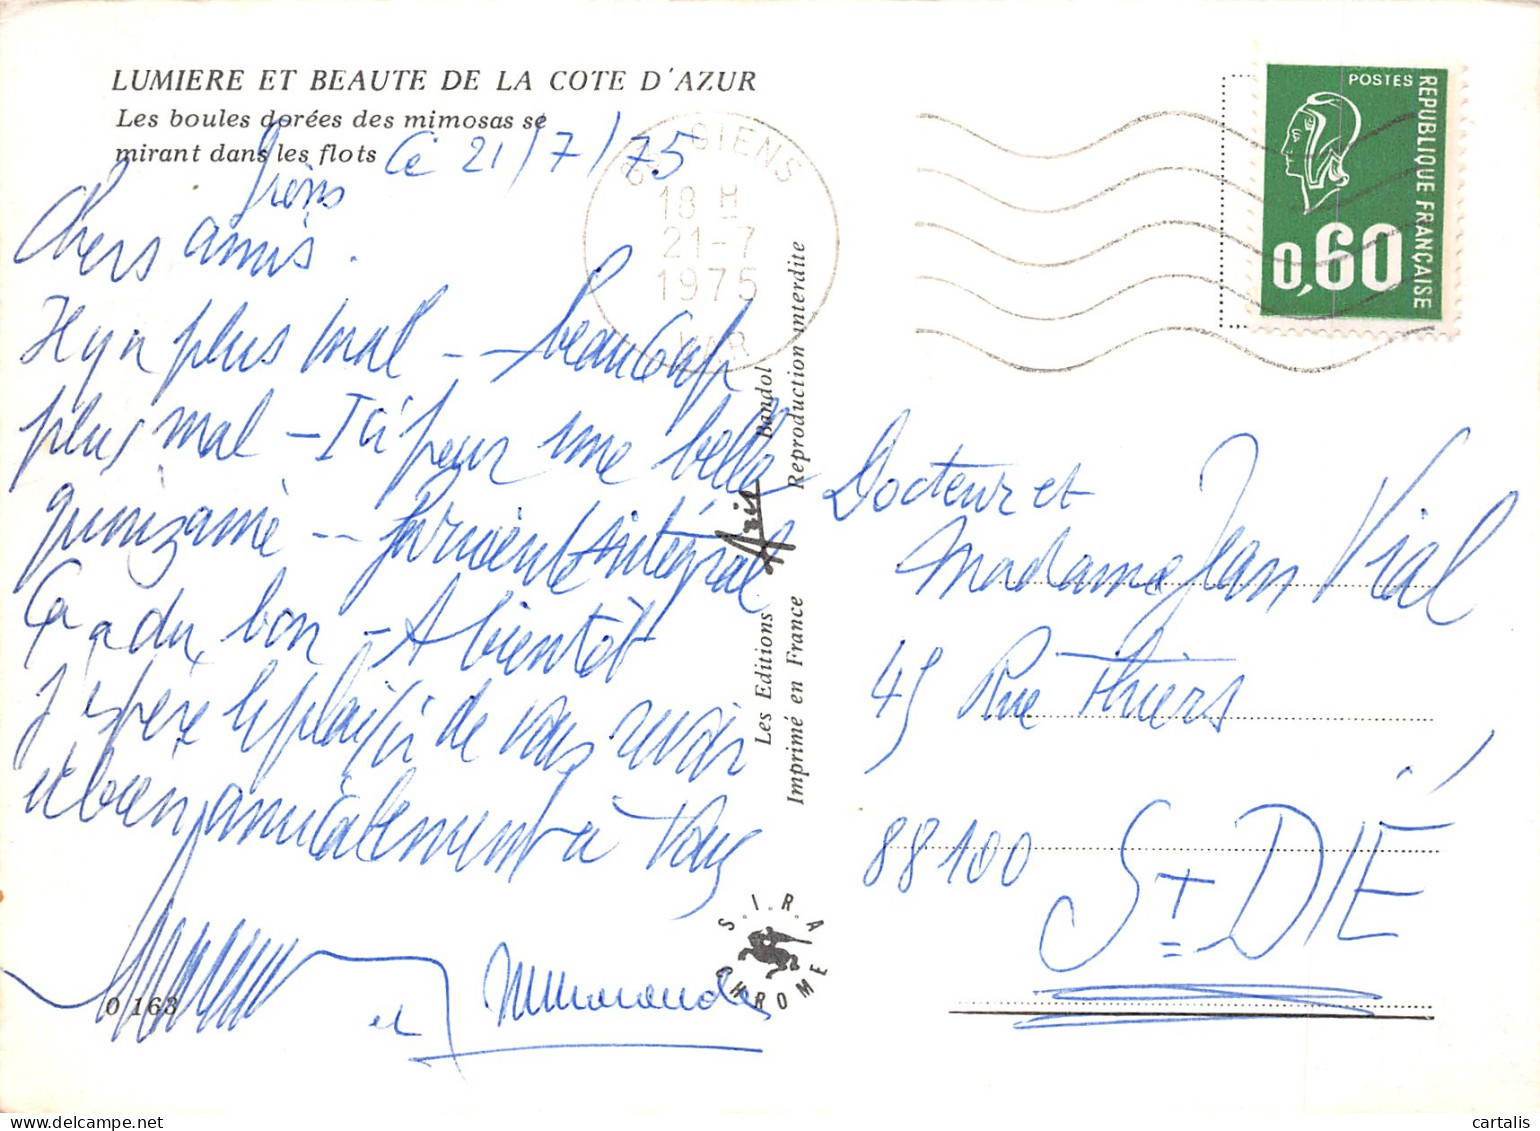 LUMIERE ET BEAUTE DE LA COTE D'AZUR
Les boules dorées des mimosas se
mirant dans les flots
Giens Ce 21/7/75
Chers amis.
Il y a plus mal -- beaucoup
plus mal - Ici pour une belle
quinzaine -- farniente intégral
Ça a du bon - A bientôt
J'espère le plaisir de vous revoir
et bien amicalement à vous
et
0 163
83 GIENS
18 H
21-7
1975
VAR
Les Editions Aris Bandol
Imprimé en France Reproduction interdite
S.I.R.A
CHROME
POSTES
REPUBLIQUE FRANÇAISE
0,60
Docteur et
Madame Jean Vial
45 Rue Thiers
88100 St DIÉ
cartalis.com